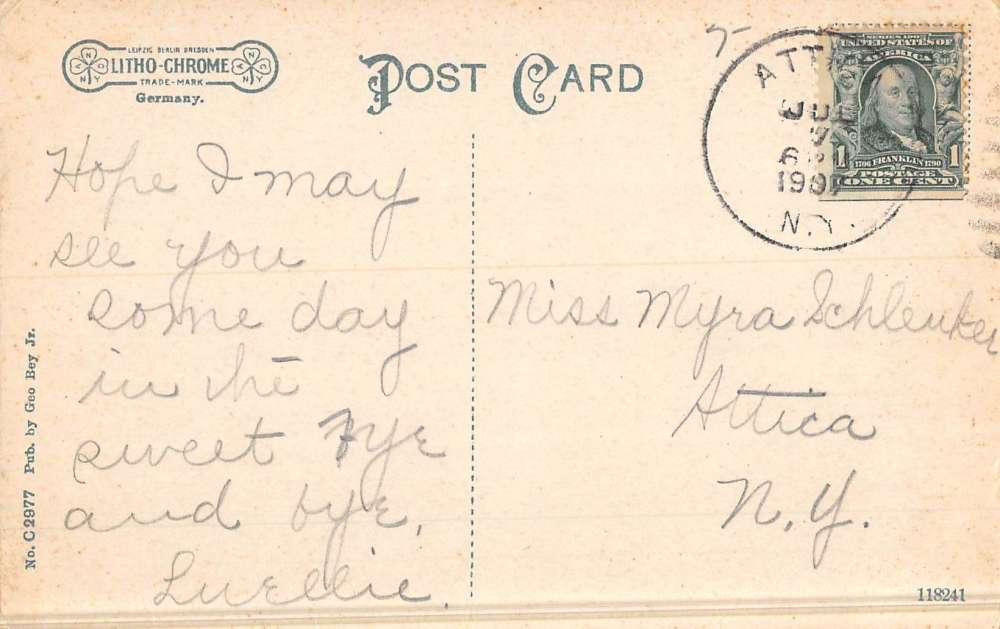 LEIPZIG BERLIN DRESDEN
LITHO-CHROME
TRADE-MARK
Germany.
POST CARD
JUL
6
1907
N.Y.
SERIES 1902
UNITED STATES OF
AMERICA
1 1706 FRANKLIN 1790 1
POSTAGE
ONE CENT
Hope I may
see you
some day
in the
sweet bye
and bye,
Luellie.
Miss Myra Schlenker
Attica
N.Y.
No. C 2977 Pub. by Geo Bey Jr.
118241